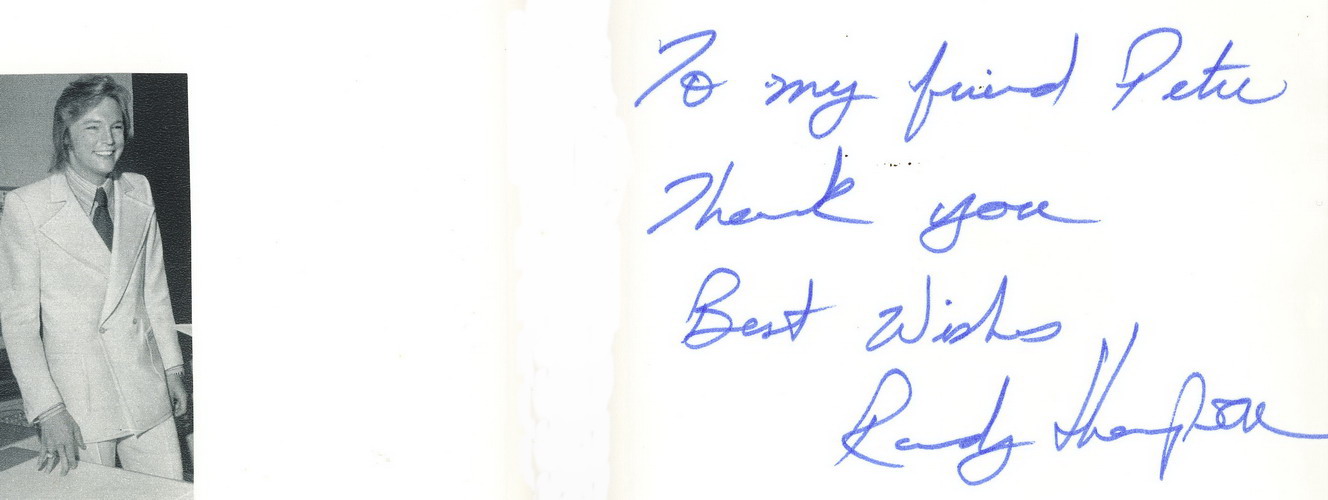 To my friend Pete
Thank you
Best Wishes
Randy Thompson